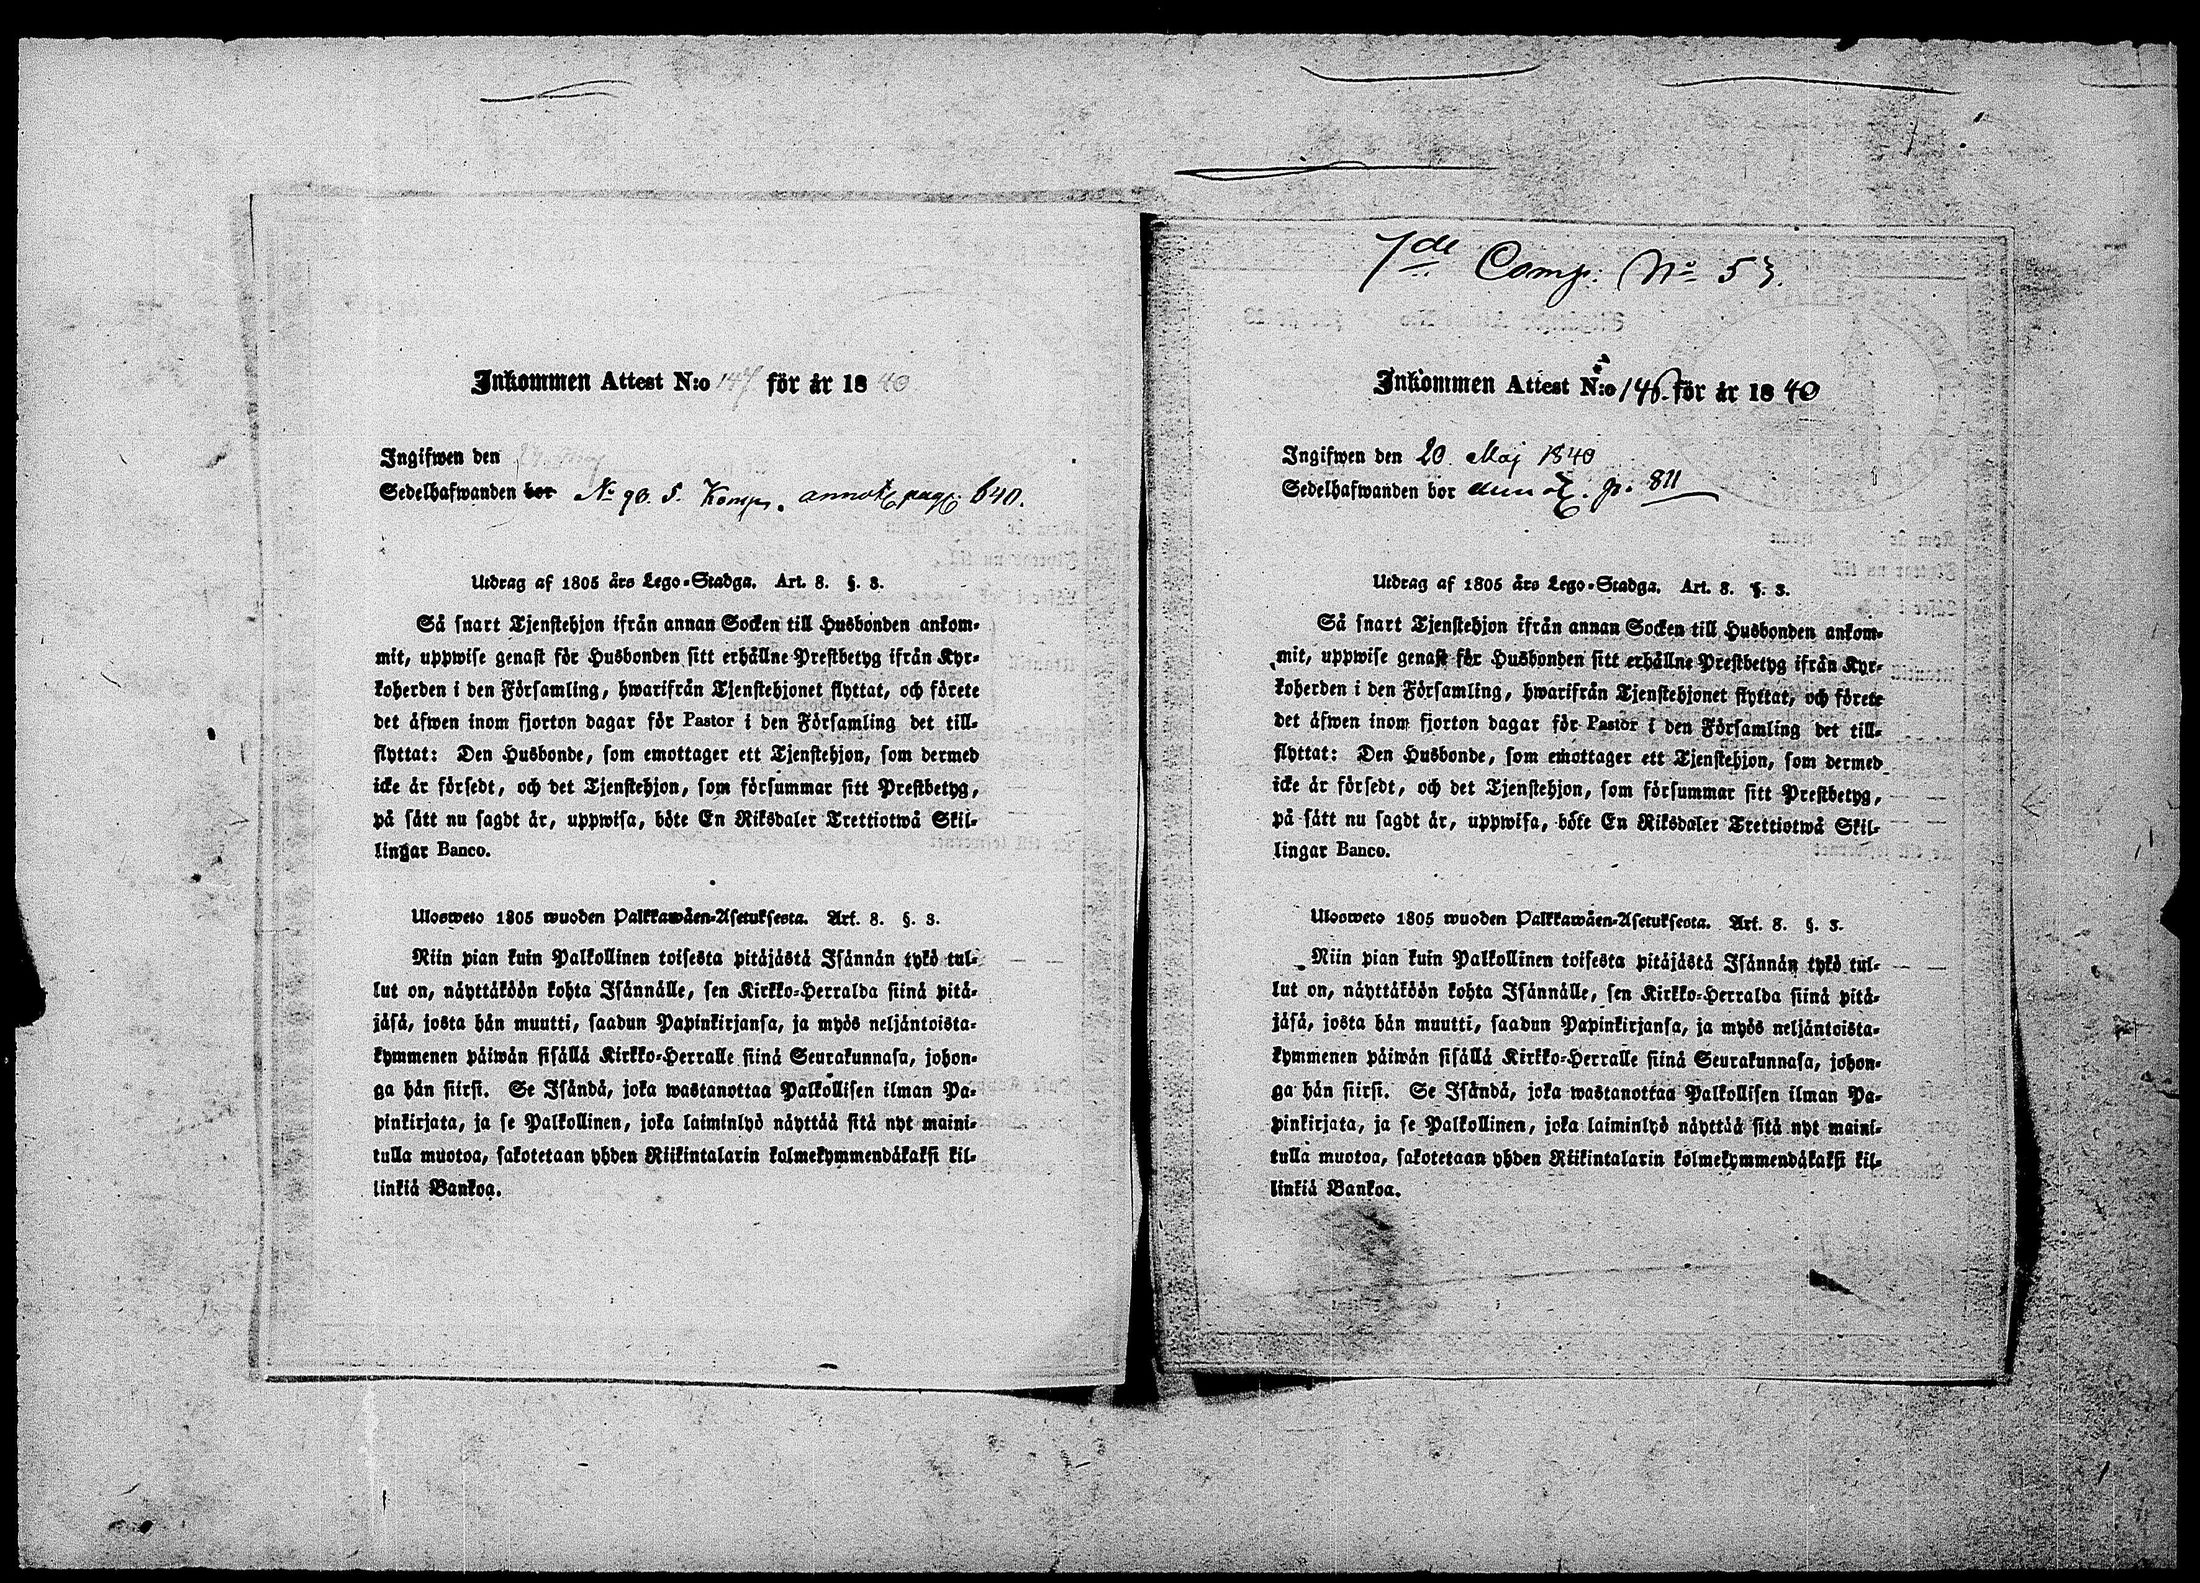 Inkommen Attest N:o 147 för år 1840
Ingifwen den
Sedelhafwanden bor No 90. 5. Komp. annot. pag. 640.
Utdrag af 1805 års Lego-Stadga. Art. 8. §. 3.
Så snart Tjenstehjon ifrån annan Socken till Husbonden ankom-
mit, uppwise genast för Husbonden sitt erhållne Prestbetyg ifrån Kyr-
koherden i den Församling, hwarifrån Tjenstehjonet flyttat, och förete
det åfwen inom fjorton dagar för Pastor i den Församling det till-
flyttat: Den Husbonde, som emottager ett Tjenstehjon, som dermed
icke är försedt, och det Tjenstehjon, som försummar sitt Prestbetyg,
på sått nu sagdt är, uppwisa, böte En Riksdaler Trettiotwå Skil-
lingar Banco.
Ulosweto 1805 wuoden Palkkawäen-Asetuksesta. Art. 8. §. 3.
Niin pian kuin Palkollinen toisesta pitäjästä Isännän tykö tul-
lut on, näyttäköön kohta Isännälle, sen Kirkko-Herralda siinä pitä-
jäsä, josta hän muutti, saadun Papinkirjansa, ja myös neljäntoista-
kymmenen päiwän sisällä Kirkko-Herralle siinä Seurakunnasa, johon-
ga hän siirsi. Se Isändä, joka wastanottaa Palkollisen ilman Pa-
pinkirjata, ja se Palkollinen, joka laiminlyö näyttää sitä nyt maini-
tulla muotoa, sakotetaan yhden Riikintalarin kolmekymmendäkaksi kil-
linkiä Bankoa.
7de Comp. No 53.
Inkommen Attest N:o 146. för år 1840
Ingifwen den 20 Maj 1840
Sedelhafwanden bor annot. p. 811
Utdrag af 1805 års Lego-Stadga. Art. 8. §. 3.
Så snart Tjenstehjon ifrån annan Socken till Husbonden ankom-
mit, uppwise genast för Husbonden sitt erhållne Prestbetyg ifrån Kyr-
koherden i den Församling, hwarifrån Tjenstehjonet flyttat, och förete
det åfwen inom fjorton dagar för Pastor i den Församling det till-
flyttat: Den Husbonde, som emottager ett Tjenstehjon, som dermed
icke är försedt, och det Tjenstehjon, som försummar sitt Prestbetyg,
på sått nu sagdt är, uppwisa, böte En Riksdaler Trettiotwå Skil-
lingar Banco.
Ulosweto 1805 wuoden Palkkawäen-Asetuksesta. Art. 8. §. 3.
Niin pian kuin Palkollinen toisesta pitäjästä Isännän tykö tul-
lut on, näyttäköön kohta Isännälle, sen Kirkko-Herralda siinä pitä-
jäsä, josta hän muutti, saadun Papinkirjansa, ja myös neljäntoista-
kymmenen päiwän sisällä Kirkko-Herralle siinä Seurakunnasa, johon-
ga hän siirsi. Se Isändä, joka wastanottaa Palkollisen ilman Pa-
pinkirjata, ja se Palkollinen, joka laiminlyö näyttää sitä nyt maini-
tulla muotoa, sakotetaan yhden Riikintalarin kolmekymmendäkaksi kil-
linkiä Bankoa.